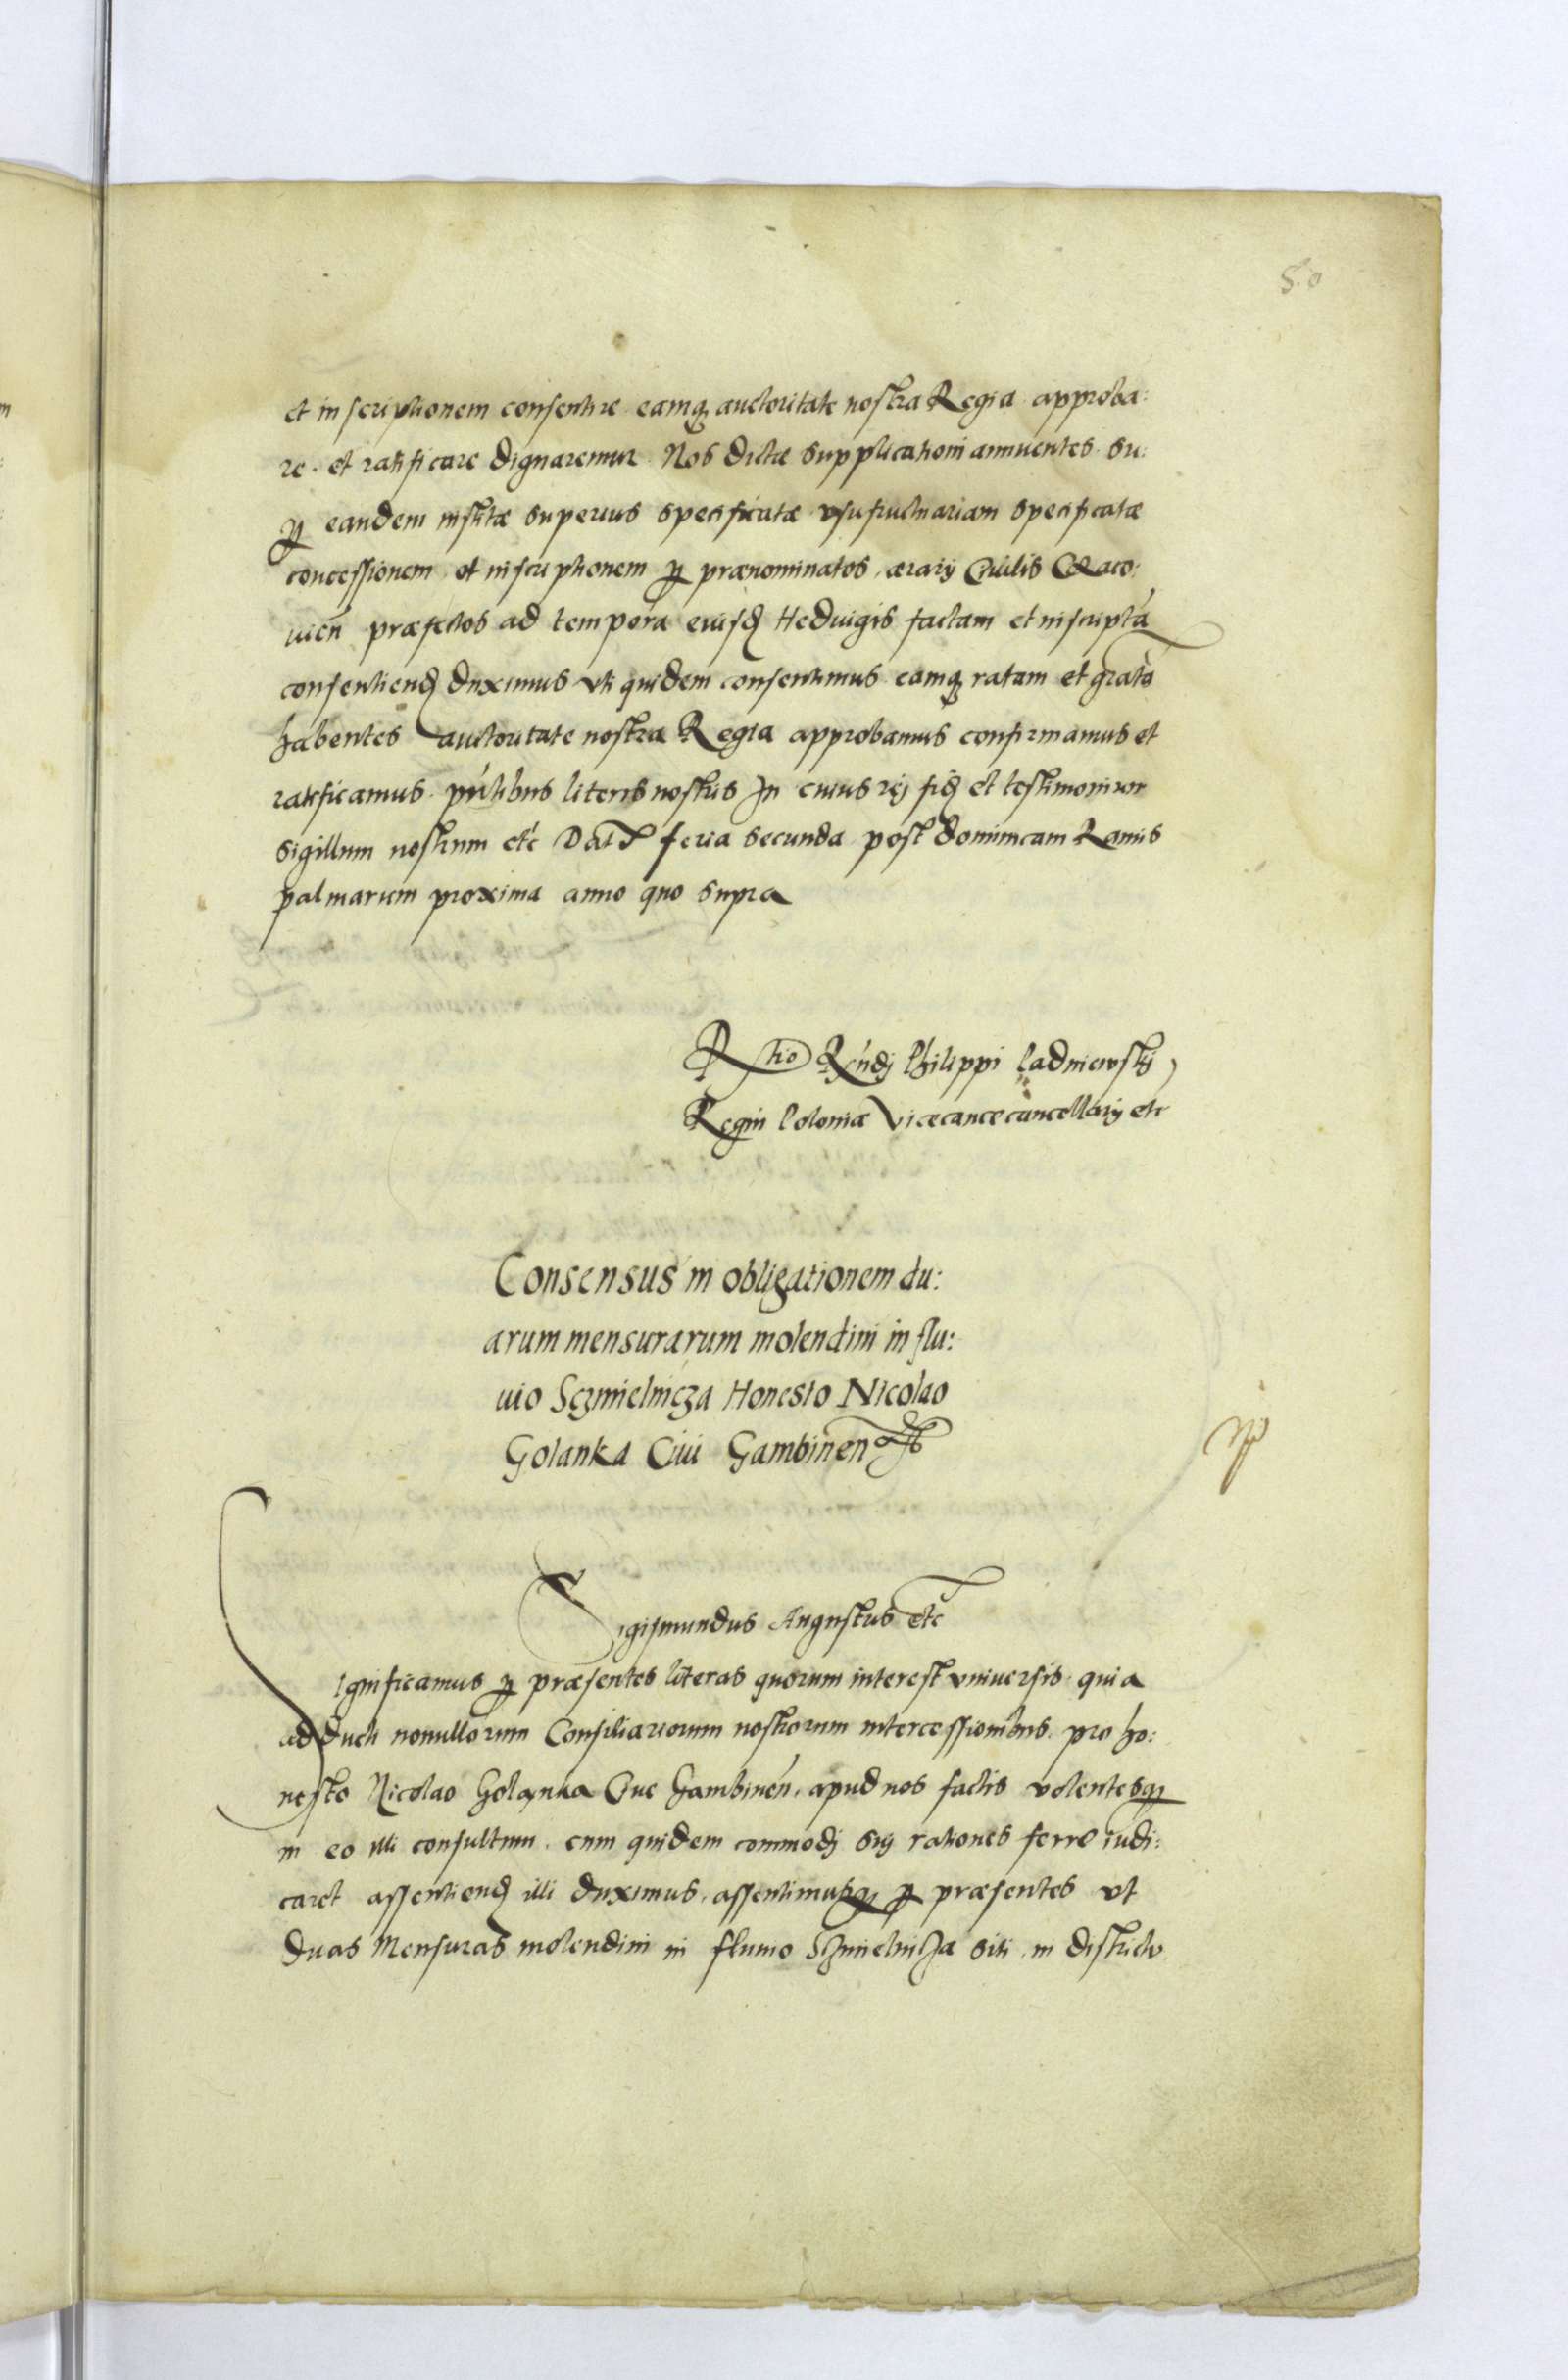 50
et inscriptionem consentire eamq́ auctoritate nostra Regia approba:
re. et ratificare dignaremur. Nos dictæ supplicationi annuentes. su:
ꝑ eandem insulæ superius specificatæ vsufructuariam specificatæ
concessionem et inscriptionem ꝑ prænominatos ærarij Ciuilis Craco:
uień præfectos ad tempora eiusd Heduigis factam et inscriptā
consentiend duximus vti quidem consentimus eamq́ ratam et gratā
habentes auctoritate nostra Regia approbamus confirmamus et
ratificamus. pńtibus literis nostris In cuius rej fid et testimonium
sigillum nostrum etć Dat feria secunda post dominicam Ramis
palmarum proxima anno quo supra
Rtio Rńdj Philippi Padniewskj
Regni Poloniæ Vicecancecancellarij etc
Consensus in obligationem du:
arum mensurarum molendini in flu:
uio Sczmielnicza Honesto Nicolao
Golanka Ciui Gambinen
Sigismundus Augustus etc
Significamus ꝑ præsentes literas quorum interest vniuersis. quia
adducti nonullorum Consiliariorum nostrorum intercessionibus. pro ho:
nesto Nicolao Golanka Ciue Gambineń. apud nos factis volentesq́
in eo illi consultum. cum quidem commodj suj rationes ferre iudi:
caret assentiend illi duximus. assentimusq́ ꝑ præsentes vt
duas Mensuras molendini in fluuio Sczmielnicza siti. in districtu